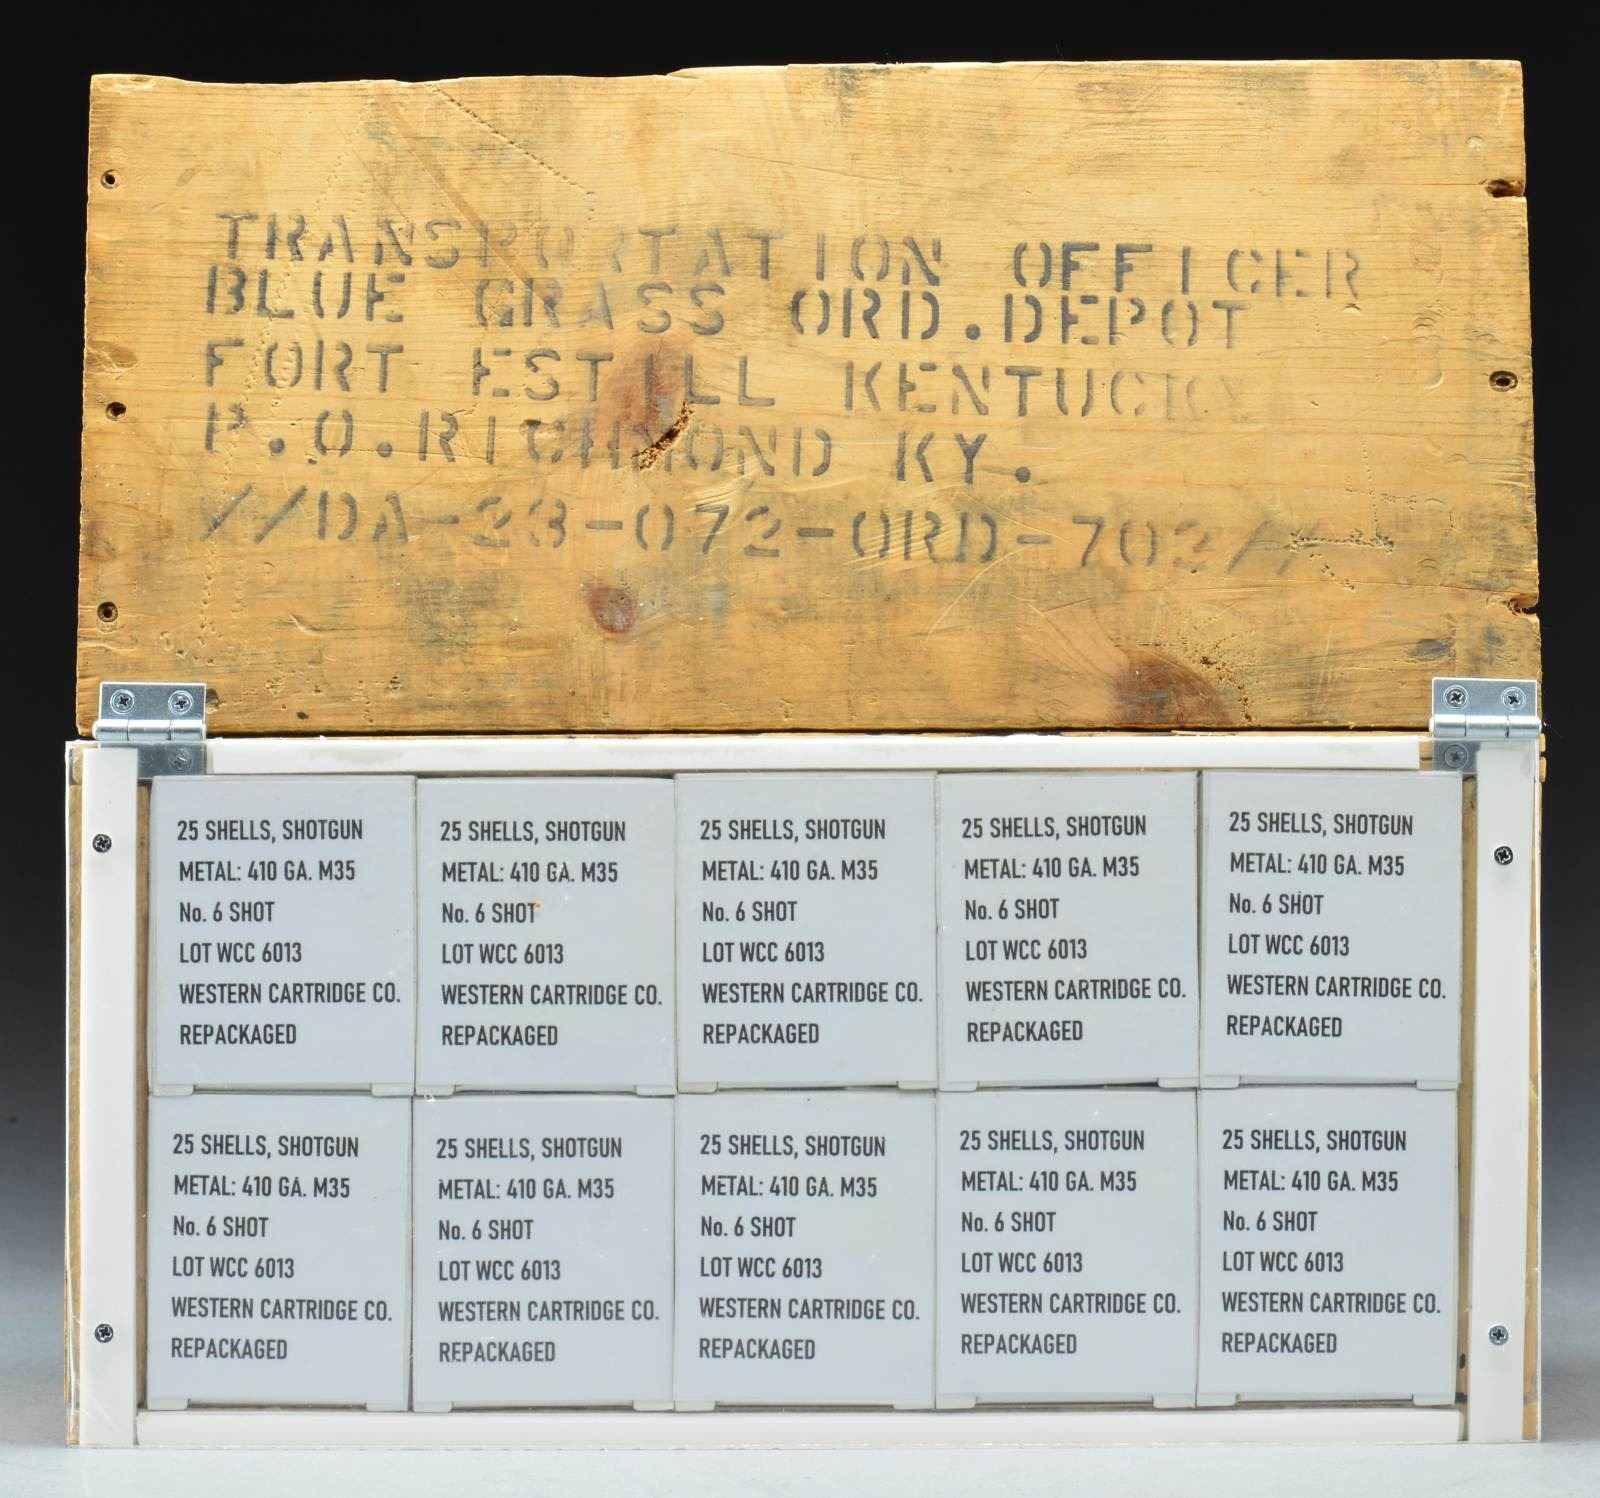 TRANSPORTATION OFFICER
BLUE GRASS ORD.DEPOT
FORT ESTILL KENTUCKY
P.O.RICHMOND KY.
//DA-23-072-ORD-702//
25 SHELLS, SHOTGUN
METAL: 410 GA. M35
No. 6 SHOT
LOT WCC 6013
WESTERN CARTRIDGE CO.
REPACKAGED
25 SHELLS, SHOTGUN
METAL: 410 GA. M35
No. 6 SHOT
LOT WCC 6013
WESTERN CARTRIDGE CO.
REPACKAGED
25 SHELLS, SHOTGUN
METAL: 410 GA. M35
No. 6 SHOT
LOT WCC 6013
WESTERN CARTRIDGE CO.
REPACKAGED
25 SHELLS, SHOTGUN
METAL: 410 GA. M35
No. 6 SHOT
LOT WCC 6013
WESTERN CARTRIDGE CO.
REPACKAGED
25 SHELLS, SHOTGUN
METAL: 410 GA. M35
No. 6 SHOT
LOT WCC 6013
WESTERN CARTRIDGE CO.
REPACKAGED
25 SHELLS, SHOTGUN
METAL: 410 GA. M35
No. 6 SHOT
LOT WCC 6013
WESTERN CARTRIDGE CO.
REPACKAGED
25 SHELLS, SHOTGUN
METAL: 410 GA. M35
No. 6 SHOT
LOT WCC 6013
WESTERN CARTRIDGE CO.
REPACKAGED
25 SHELLS, SHOTGUN
METAL: 410 GA. M35
No. 6 SHOT
LOT WCC 6013
WESTERN CARTRIDGE CO.
REPACKAGED
25 SHELLS, SHOTGUN
METAL: 410 GA. M35
No. 6 SHOT
LOT WCC 6013
WESTERN CARTRIDGE CO.
REPACKAGED
25 SHELLS, SHOTGUN
METAL: 410 GA. M35
No. 6 SHOT
LOT WCC 6013
WESTERN CARTRIDGE CO.
REPACKAGED